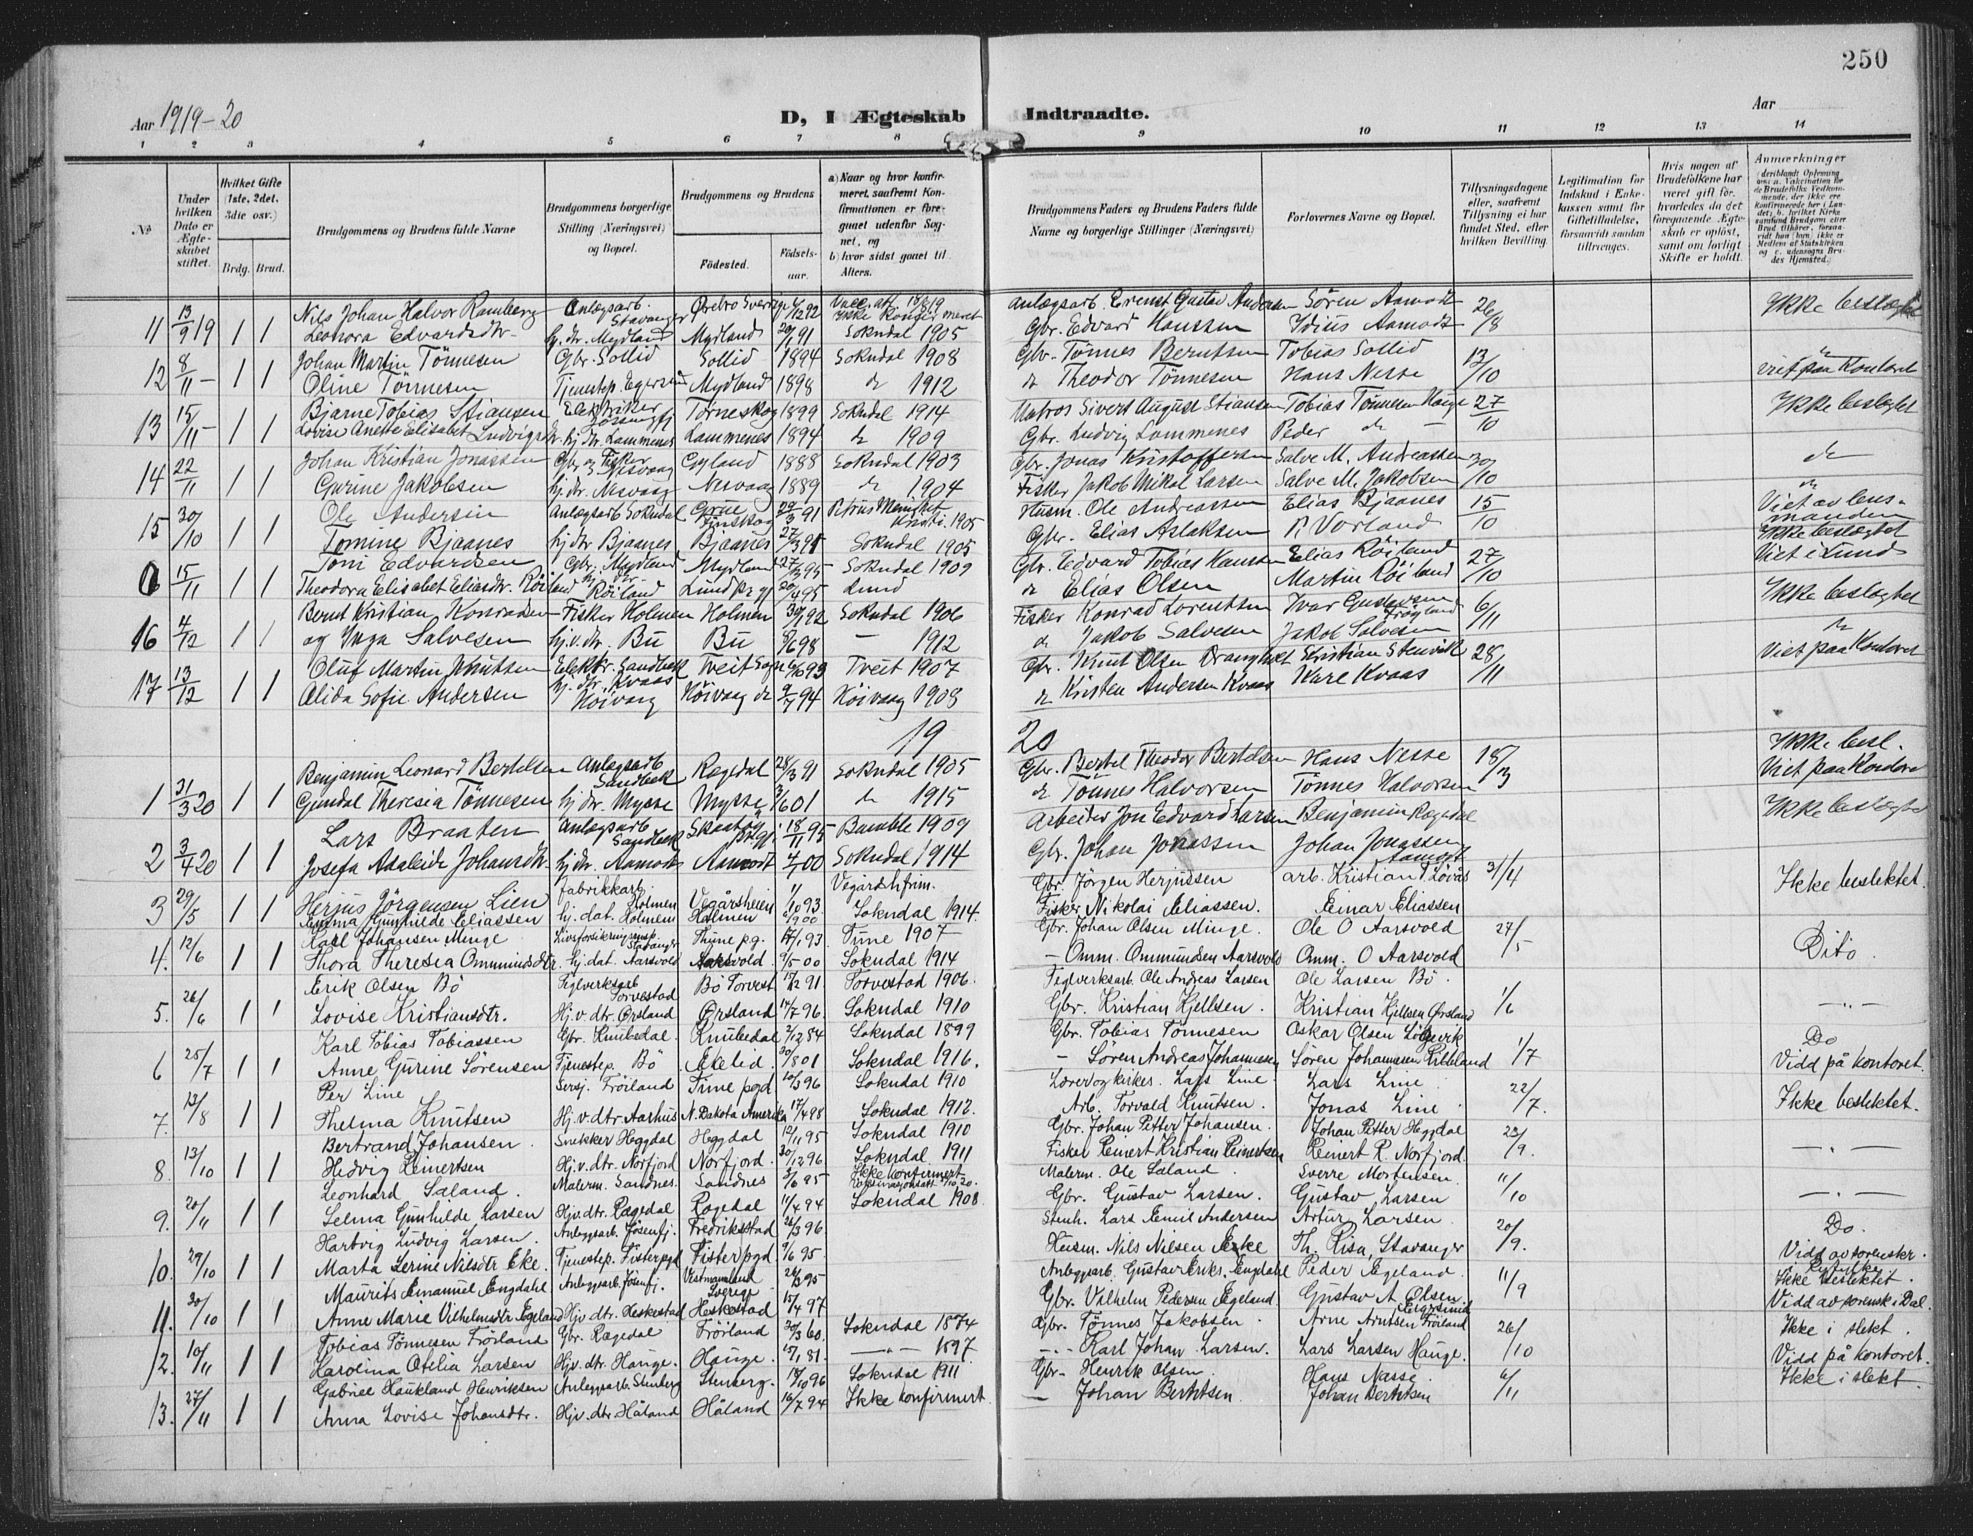 250
Aar 1919-20
D, I Ægteskab Indtraadte.
Aar
1 2 3 4 5 6 7 8 9 10 11 12 13 14
No
Under hvilken Dato er Ægteskabet stiftet.
Hvilket Gifte (1ste, 2det, 3die osv.)
Brdg. Brud.
Brudgommens og Brudens fulde Navne
Brudgommens borgerlige Stilling (Næringsvei) og Bopæl.
Brudgommens og Brudens
Fødested. Fødselsaar.
a) Naar og hvor konfirmeret, saafremt Konfirmationen er foregaaet udenfor Sognet, og
b) hvor sidst gaaet til Alters.
Brudgommens Faders og Brudens Faders fulde Navne og borgerlige Stillinger (Næringsvei)
Forlovernes Navne og Bopæl.
Tillysningsdagene eller, saafremt Tillysning ei har fundet Sted, efter hvilken Bevilling.
Legitimation for Indskud i Enkekassen samt for Giftetilladelse, forsaavidt saadan tiltrænges.
Hvis nogen af Brudefolkene har været gift før, hvorledes da det foregaaende Ægteskab er opløst, samt om lovligt Skifte er holdt.
Anmærkninger
11 13/9 19 1 1 Nils Johan Halvor Ramberg Anlægsarb. Stavanger Ørebro Sverige 92 Ikke konfirmeret Anlægsarb. Ernst Gustav Andersen Sören Aamodt 26/8 Ikke beslægtet
Leonora Edvardsdtr. hj. dr. Mydland Mydland 20/1 91 Sokndal 1905 Gbr. Edvard Hanssen Idius Aamodt
12 8/11 - 1 1 Johan Martin Tönnesen Gbr. Sollid Sollid 1894 Sokndal 1908 Gbr. Tönnes Berntsen Tobias Sollid 13/10
Oline Tönnesen Tjenestep. Egersund Mydland 1898 do 1912 do Theodor Tönnesen Hans Nesse viet paa Kontoret
13 15/11 - 1 1 Bjarne Tobias Stiansen Elektriker Törneskog 1899 Sokndal 1914 Matros Sivert August Stiansen Tobias Tönnesen Hauge 27/10 Ikke beslægtet
Lovise Anette Elisabet Ludvigs hj. dtr. Lammenes Lammenes 1894 do 1909 Gbr. Ludvig Lammenes Peder do -
14 22/11 1 1 Johan Kristian Jonassen Gbr. og Fisker Nesvaag Egeland 1888 Sokndal 1903 Gbr. Jonas Kristoffersen Salve M. Andreassen 30/10 do
Gurine Jakobsen hj. dtr. Nesvaag Nesvaag 1889 do 1904 Fisker Jakob Mikal Larsen Salve M. Jakobsen
15 30/10 1 1 Ole Andersen Anlægsarb. Sokndal Grue Finskog 29/3 91 Petrus Menighet Kristi. 1905 Husm. Ole Andreassen Elias Bjaanes 15/10 do Viet av lensmanden
Tomine Bjaanes hj. dtr. Bjaanes Bjaanes 27/3 91 Sokndal 1905 Gbr. Elias Aslaksen R. Vorland Ikke beslægtet
0 15/11 1 1 Toni Edvardsen Gbr. Mydland Mydland 27/3 95 Sokndal 1909 Gbr. Edvard Tobias Hanssen Elias Röiland 27/10 Viet i Lund
Theodora Elisabet Eliasdtr. Röiland hj. dtr. Röiland Lund pr.gj 20/4 95 Lund do Elias Olsen Martin Röiland Ikke beslægtet
16 4/12 1 1 Bernt Kristian Konradsen Fisker Holmen Holmen 30/1 92 Sokndal 1906 Fisker Konrad Lorentsen Ivar Gustavsen Fröyland 6/11
og Inga Salvesen hj. v. dr. Bu Bu 98 - 1912 do Jakob Salvesen Jakob Salvesen do
17 13/12 1 1 Oluf Martin Knutsen Elektr. Sandbek Tveit Sogn 93 Tveit 1907 Gbr. Knut Olsen Drangholt Kristian Stenvik 28/11 Viet paa Kontoret
Alida Sofie Andersen hj. dtr. Kvaas Höivaag Höivaag do 9/7 94 Höivaag 1908 do Kristen Andersen Kvaas Kare Kvaas
19 20
1 31/3 20 1 1 Benjamin Leonard Bertelsen Anlægsarb Sandbek Rægedal 28/3 91 Sokndal 1905 Gbr. Bertel Theodor Bertelsen Hans Nesse 18/3 Ikke besl. Viet paa Kontoret
Gundal Theresia Tönnesen hj. dtr. Mysse Mysse 3/6 01 do 1915 do Tönnes Halvorsen Tönnes Halvorsen
2 3/4 20 1 1 Lars Braaten Anlægsarb Sandbek Skaatöy 18/11 95 Bamble 1909 Arbeider Jon Edvard Larsen Benjamin Rægedal Ikke beslægtet
Josefa Adaleide Johansdtr. hj. dr. Aamodt Aamodt 00 Sokndal 1914 Gbr. Johan Jonassen Johan Jonassen Aamodt
3 29/5 1 1 Herjus Jörgensen Lien Fabrikkarb. Holmen Vegårsheien 1/10 93 Vegårdsh frim. Gbr. Jörgen Herjussen arb. Kristian T. Lövås 31/4 Ikke beslektet.
Emma Gunhilde Eliassen hj. dat. Holmen Holmen 00 Sokndal 1914. Fisker Nikolai Eliassen. Einar Eliassen
4. 12/6 1 1 Karl Johansen Minge Livsforsikringsinsp. Stavanger Thune pg. 17/1 93 Tune 1907 Gbr. Johan Olsen Minge. Ole O Aarsvold 27/5 Dito.
Thora Theresia Ommundsdtr. hj. dat. Aarsvold Aarsvold. 9/5 00 Sokndal 1914 - Omm. Ommundsen Aarsvold Omm. O Aarsvold
5. 26/6 1 1 Erik Olsen Bö Teglverksarb Torvestad Bö Torvest 17/12 91 Torvestad 1906. Teglverksarb. Ole Andreas Larsen Ole Larsen Bö. 1/6 - " -
Lovise Kristiansdtr. Hj. v. dtr. Örsland Örsland 14/7 96. Sokndal 1910 Gbr. Kristian Kjellsen. Kristian Kjellsen Örsland
6 25/7 1 1 Karl Tobias Tobiassen Gbr. Knubedal Knubedal 2/12 84 Sokndal 1899 Gbr. Tobias Tönnesen Oskar Olsen Lögevik 1/7 Do
Anne Gurine Sörensen Tjenestep. Bö Eielid. 30/8 01 Sokndal 1916. - Sören Andreas Johannesen Sören Johannesen Ribbland Vidd på kontoret.
7. 13/8 1 1 Per Line Sersj. Fröiland Time pgd 10/3 96 Sokndal 1910 Lærer og kirkes. Lars Line. Lars Line 22/7. Ikke beslektet.
Thelma Knutsen Hj. v. dtr Aarhus N. Dakota Amerika 17/4 98 Sokndal 1912. Arb. Torvald Knutsen. Jonas Line
8. 13/10 1 1 Bertrand Johansen. Snekker Heggdal Heggdal 12/11 95 Sokndal 1910 Gbr. Johan Petter Johansen. Johan Petter Heggdal 23/9. - . -
Hedvig Reinertsen Hj. v. dtr. Norfjord Norfjord. 30/12 96 Sokndal. 1911 Fisker Reinert Kristian Reinertsen Reinert R. Norfjord.
9. 20/11 1 1 Leonhard Saland. Malerm. Sandnes. Sandnes 3/6 95 Ikke konfirmert Malerm. Ole Saland. Sverre Mortensen. 11/10 - . -
Selma Gunhilde Larsen Hjv. dtr. Rægedal Rægedal 11/4 94 Sokndal 1908. Gbr. Gustav Larsen. Gustav Larsen
10. 29/10 1 1 Hartvig Ludvig Larsen. Anleggsarb. Jösenfj. Fredrikstad 26/3 96 Stenh. Lars Emil Andersen Artur Larsen. 20/9. Do.
Marta Serine Nilsdtr Eke. Tjenestep. Fisterpgd Fister pgd. 9/6 95. Husm. Nils Nilsen Eike Th. Risa, Stavanger Vidd av sorenskr. i Ryfylke.
11. 30/10 1 1 Maurits Emanuel Engdahl Anleggsarb. Jösenfj. Vestmannland Sverige 26/3 95 Anleggsarb. Gustav Eriks. Engdahl Peder Egeland. 11/9 Ikke beslektet.
Anne Marie Vilhelmsdtr Egeland Hjv. dtr. Heskestad Heskestad 15/4 97 Gbr. Vilhelm Pedersen Egeland. Gustav A. Olsen Egersund Vidd av sorensk. i Dal.
12. 10/11 1 1 Tobias Tönnesen Fröiland Gbr. Rægedal Fröiland 30/3 60. Sokndal 1874 Gbr. Tönnes Jakobsen. Arne Arntsen Fröiland 26/10 Ikke i slekt.
Karolina Otelia Larsen Hjv. dtr. Hauge. Hauge. 15/1 81. - " - 1897. - . - Karl Johan Larsen. Lars Larsen Hauge. Vidd på kontoret.
13. 27/11 1 1 Gabriel Haukland Henriksen Anleggsarb. Stenberg Stenberg. 18/10 96 Sokndal 1911 Gbr- Henrik Olsen Hans Nasse. 6/11 Ikke i slekt.
Anna Lovise Johansdtr. Hjv. dtr Håland Håland 16/7 94 Ikke konfirmert - Johan Berntsen. Johan Berntsen